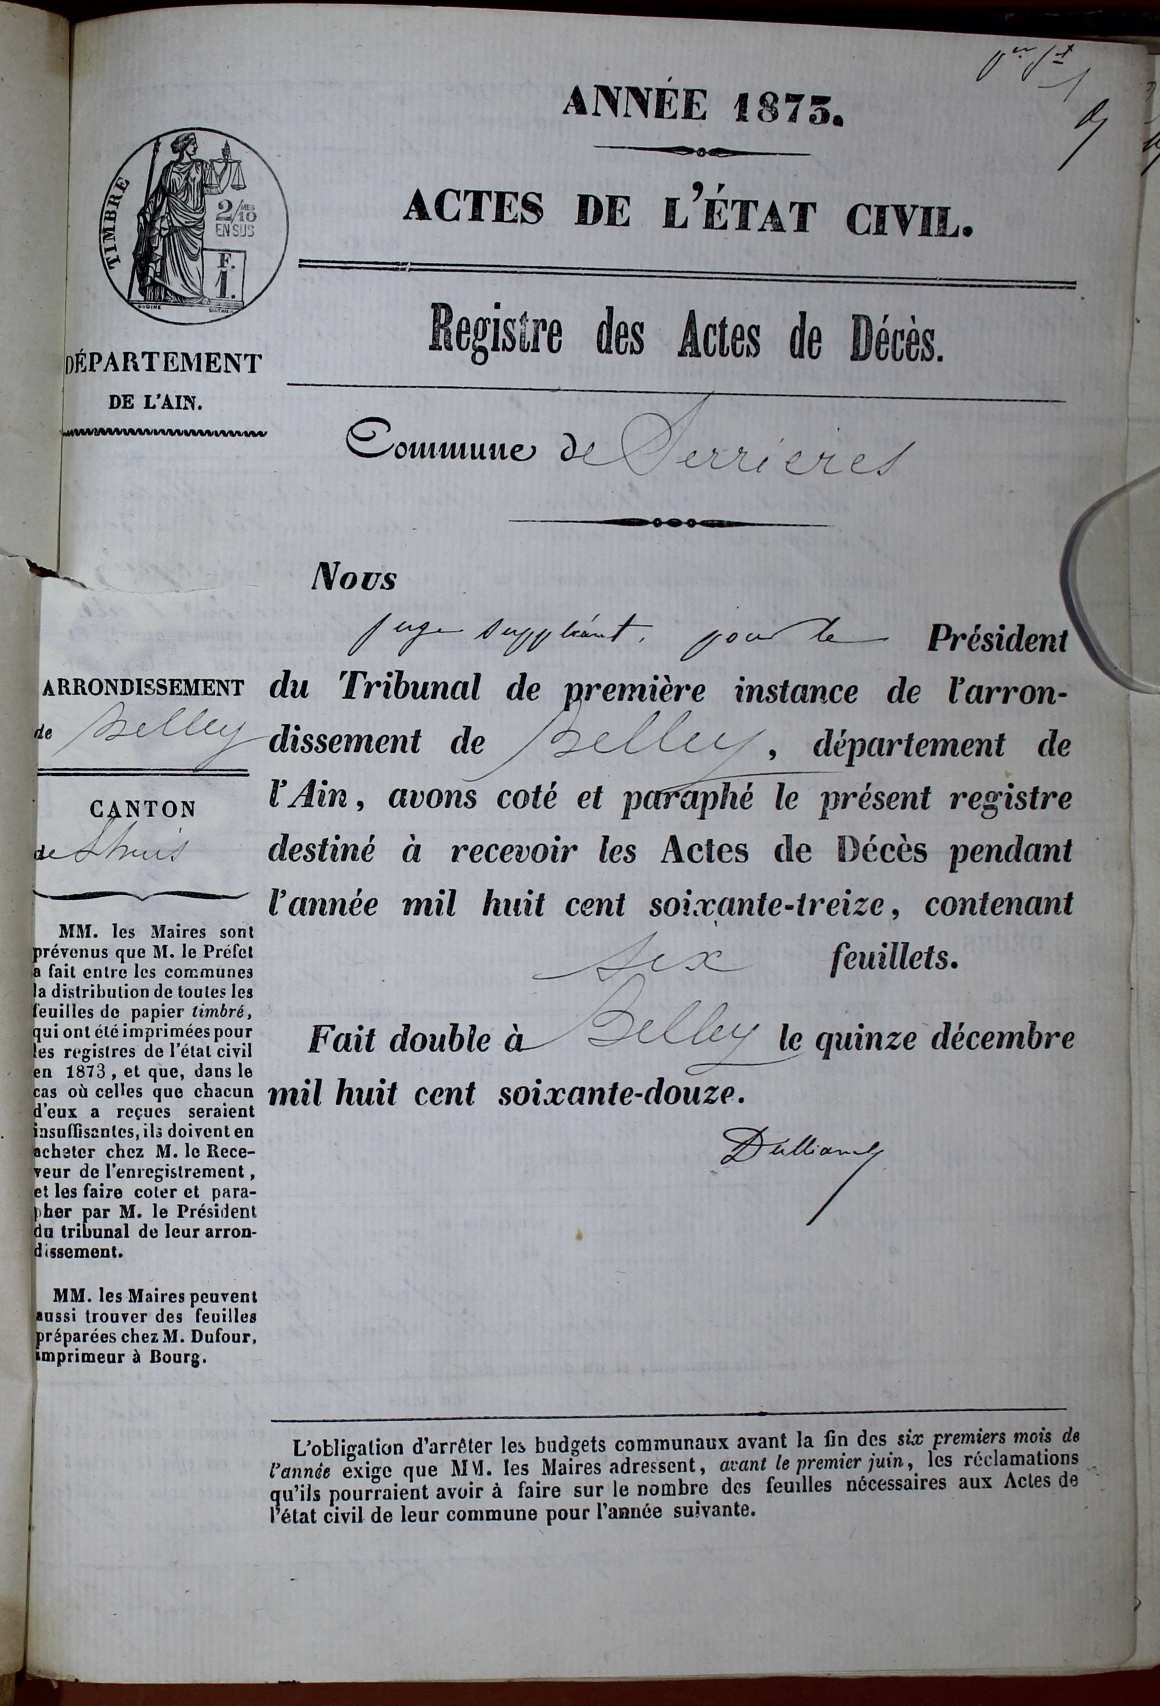 ANNÉE 1873.
ACTES DE L'ÉTAT CIVIL.
TIMBRE
2/10 MES
EN SUS
F.
1.
Registre des Actes de Décès.
DÉPARTEMENT
DE L'AIN.
Commune de Serrières
Nous
juge suppléant, pour le Président
du Tribunal de première instance de l'arron-
dissement de Belley, département de
l'Ain, avons coté et paraphé le présent registre
destiné à recevoir les Actes de Décès pendant
l'année mil huit cent soixante-treize, contenant
six feuillets.
Fait double à Belley le quinze décembre
mil huit cent soixante-douze.
ARRONDISSEMENT
de Belley
CANTON
de Lhuis
MM. les Maires sont
prévenus que M. le Préfet
a fait entre les communes
la distribution de toutes les
feuilles de papier timbré,
qui ont été imprimées pour
les registres de l'état civil
en 1873, et que, dans le
cas où celles que chacun
d'eux a reçues seraient
insuffisantes, ils doivent en
acheter chez M. le Rece-
veur de l'enregistrement,
et les faire coter et para-
pher par M. le Président
du tribunal de leur arron-
dissement.
MM. les Maires peuvent
aussi trouver des feuilles
préparées chez M. Dufour,
imprimeur à Bourg.
L'obligation d'arrêter les budgets communaux avant la fin des six premiers mois de
l'année exige que MM. les Maires adressent, avant le premier juin, les réclamations
qu'ils pourraient avoir à faire sur le nombre des feuilles nécessaires aux Actes de
l'état civil de leur commune pour l'année suivante.